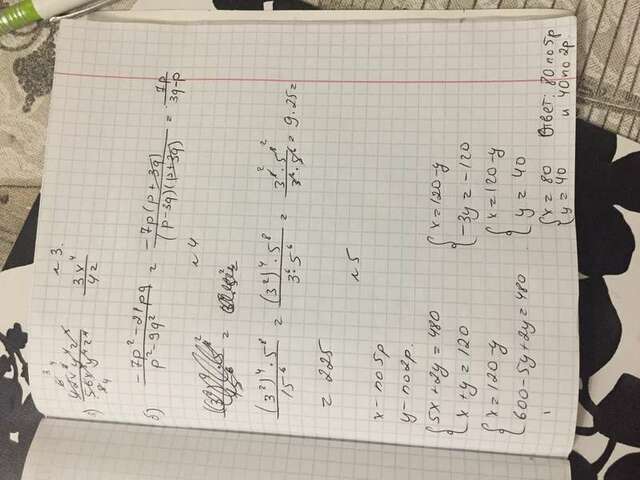 №3.
3x⁴/4z
б) (-7p² - 21pq)/(p² - 9q²) = -7p(p+3q)/((p-3q)(p+3q)) = 7p/(3q-p)
№4
(3²)⁴ · 5⁸/15⁶ = (3²)⁴ · 5⁸/(3⁶ · 5⁶) = 3⁸ · 5⁸/(3⁶ · 5⁶) = 9 · 25 =
= 225
№5
x - по 5р
y - по 2р.
{5x + 2y = 480
{x + y = 120
{x = 120 - y
{600 - 5y + 2y = 480
{x = 120 - y
{-3y = -120
{x = 120 - y
{y = 40
{x = 80
{y = 40
Ответ: 80 по 5р
и 40 по 2р.